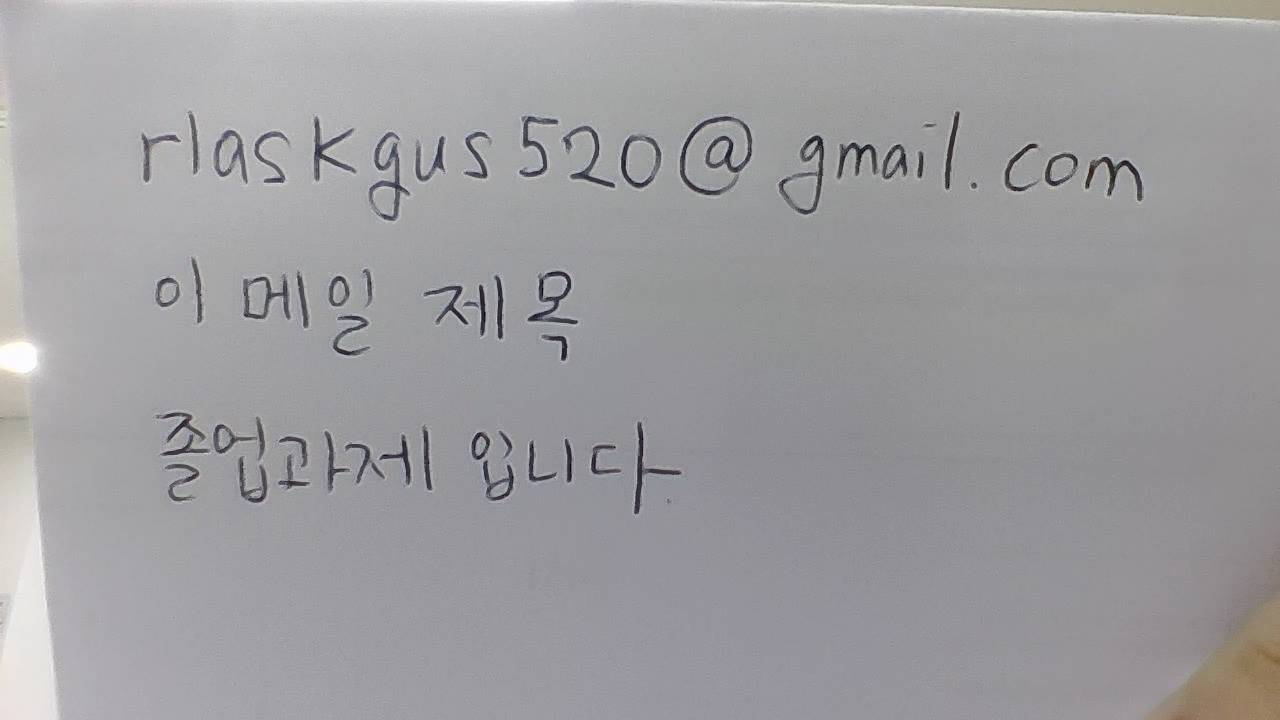 rlaskgus520@gmail.com
이 메일 제목
졸업과제 입니다.